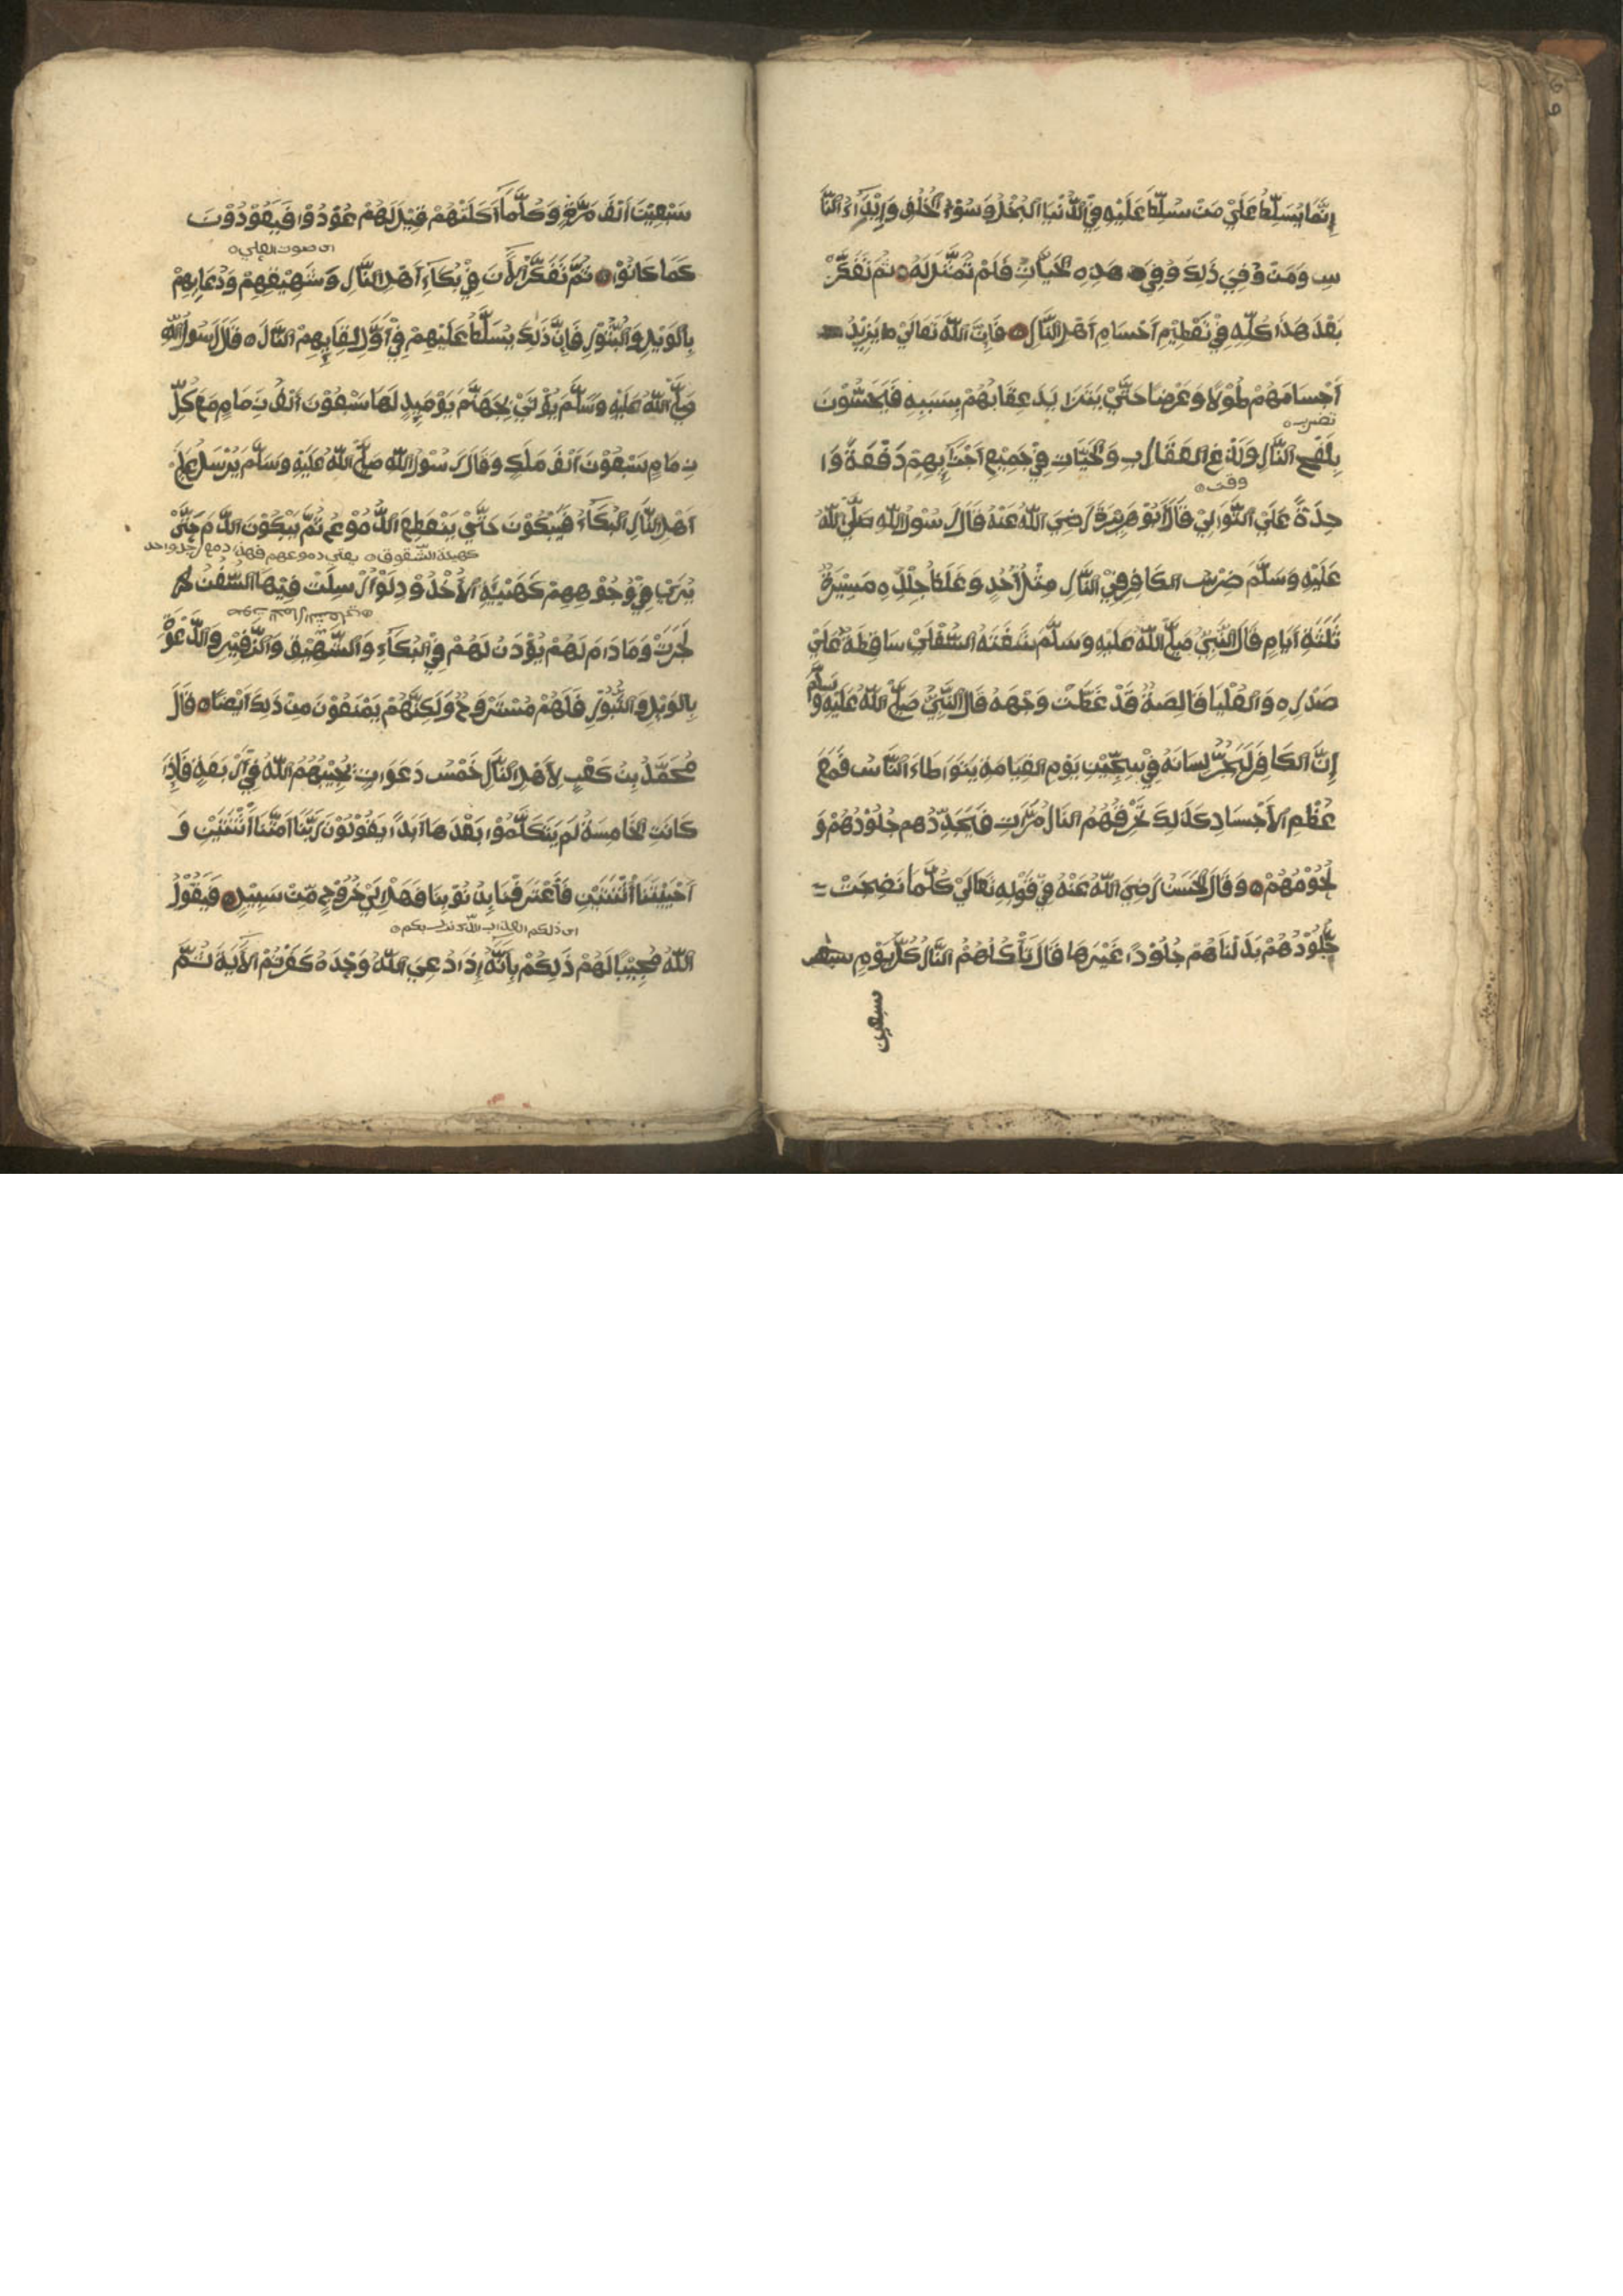 إِنَّمَا يُسَلَّطُ عَلَيْ مَنْ سُلِّطَ عَلَيْهِ فِي الدُّنْيَا الْبُخْلُ وَسُوْءُ الْخُلُقِ وَإِيْذَاءُ النَّا
سِ وَمَنْ وُقِيَ ذَلِكَ وُقِيَ هَذِهِ الْحَيَّاتِ فَلَمْ تُمَثَّلْ لَهُ ثُمَّ تَفَكَّرْ
بَعْدَ هَذَا كُلِّهِ فِيْ تَعْظِيْمِ أَجْسَامِ أَهْلِ النَّارِ فَإِنَّ اللّٰهَ تَعَالَيْ يَزِيْدُ
أَجْسَامَهُمْ طُوْلًا وَعَرْضًا حَتَّيْ يَتَزَايَدَ عِقَابُهُمْ بِسَبَبِهِ فَيُحِسُّوْنَ
تضرب
بِلَفْحِ النَّارِ وَلَدْغِ الْعَقَارِبِ وَالْحَيَّاتِ فِيْ جَمِيْعِ أَجْزَائِهِمْ دَفْعَةً وَا
وقت
حِدَةً عَلَيْ التَّوَالِيْ قَالَ أَبُوْ هُرَيْرَةَ رَضِيَ اللّٰهُ عَنْهُ قَالَ رَسُوْلُ اللّٰهِ صَلَّى اللّٰهُ
عَلَيْهِ وَسَلَّمَ ضِرْسُ الْكَافِرِ فِيْ النَّارِ مِثْلُ أُحُدٍ وَغِلَظُ جِلْدِهِ مَسِيْرَةُ
ثَلَثَةِ أَيَّامٍ قَالَ النَّبِيُّ صَلَّى اللّٰهُ عَلَيْهِ وَسَلَّمَ شَفَتُهُ السُّفْلَيْ سَاقِطَةٌ عَلَيْ
صَدْرِهِ وَالْعُلْيَا قَالِصَةٌ قَدْ غَطَتْ وَجْهَهُ قَالَ النَّبِيُّ صَلَّى اللّٰهُ عَلَيْهِ وَسَلَّمَ
إِنَّ الْكَافِرَ لَيَجُرُّ لِسَانَهُ فِيْ سِجِّيْنَ يَوْمَ الْقِيَامَةِ يَتَوَاطَاءُ النَّاسُ فَمَعَ
عُظْمِ الْأَجْسَادِ كَذَلِكَ تُحْرِقُهُمُ النَّارُ مَرَّاتٍ فَيُجَدِّدُهُمْ جُلُوْدُهُمْ وَ
لُحُوْمُهُمْ وَقَالَ الْحَسَنُ رَضِيَ اللّٰهُ عَنْهُ فِيْ قَوْلِهِ تَعَالَيْ كُلَّمَا نَضِجَتْ
جُلُوْدُهُمْ بَدَّلْنَاهُمْ جُلُوْدًا غَيْرَهَا قَالَ تَأْكُلُهُمُ النَّارُ كُلَّ يَوْمٍ سبعين
سبعين
سَبْعِيْنَ أَلْفَ مَرَّةٍ وَكُلَّمَا أَكَلَتْهُمْ قِيْلَ لَهُمْ عُوْدُوْا فَيَعُوْدُوْنَ
اى صوت
كَمَا كَانُوْا ثُمَّ تَفَكَّرِ الْأَنَ فِيْ بُكَاءِ أَهْلِ النَّارِ وَشَهِيْقِهِمْ وَدُعَائِهِمْ
بِالْوَيْلِ وَالثُّبُوْرِ فَإِنَّ ذَلِكَ يُسَلَّطُ عَلَيْهِمْ فِيْ أَوَّلِ لِقَائِهِمْ النَّارَ قَالَ رَسُوْلُ اللّٰهِ
صَلَّى اللّٰهُ عَلَيْهِ وَسَلَّمَ يُؤْتَيْ بِجَهَنَّمَ يَوْمَئِذٍ لَهَا سَبْعُوْنَ أَلْفَ زِمَامٍ مَعَ كُلِّ
زِمَامٍ سَبْعُوْنَ أَلْفَ مَلَكٍ وَقَالَ رَسُوْلُ اللّٰهِ صَلَّى اللّٰهُ عَلَيْهِ وَسَلَّمَ يُرْسَلُ عَلَيْ
أَهْلِ النَّارِ الْبُكَاءُ فَيَبْكُوْنَ حَتَّيْ يَنْقَطِعَ الدُّمُوْعُ ثُمَّ يَبْكُوْنَ الدَّمَ حَتَّيْ
كهيئة الشقوق يعنى دموعهم فهذا دمع رجل واحد
يُرَيْ فِيْ وُجُوْهِهِمْ كَهَيْئَةِ الْأُخْدُوْدِ لَوْ أُرْسِلَتْ فِيْهَا السُّفُنُ
لَجَرَتْ وَمَا دَامَ لَهُمْ يُؤْذَنُ لَهُمْ فِيْ الْبُكَاءِ وَالشَّهِيْقِ وَالزَّفِيْرِ وَالدَّعْوَةِ
بِالْوَيْلِ وَالثُّبُوْرِ فَلَهُمْ مُسْتَرْوَحٌ وَلَكِنَّهُمْ يُمْنَعُوْنَ مِنْ ذَلِكَ أَيْضًا قَالَ
مُحَمَّدُ بْنُ كَعْبٍ لِأَهْلِ النَّارِ خَمْسُ دَعَوَاتٍ يُجِيْبُهُمُ اللّٰهُ فِيْ أَرْبَعَةٍ فَإِذَا
كَانَتِ الْخَامِسَةُ لَمْ يَتَكَلَّمُوْا بَعْدَهَا أَبَدًا يَقُوْلُوْنَ رَبَّنَا أَمَتَّنَا أثْنَتَيْنِ وَ
أَحْيَيْتَنَا أثْنَتَيْنِ فَأعْتَرَفْنَا بِذُنُوْبِنَا فَهَلْ إِلَيْ خُرُوْجٍ مِّنْ سَبِيْلٍ فَيَقُوْلُ
اى ذلكم العذاب الذى نزل بكم
اللّٰهُ مُجِيْبًا لَهُمْ ذَلِكُمْ بِأَنَّهُ إِذَا دُعِيَ اللّٰهُ وَحْدَهُ كَفَرْتُمْ الْأَيَةَ ثُمَّ